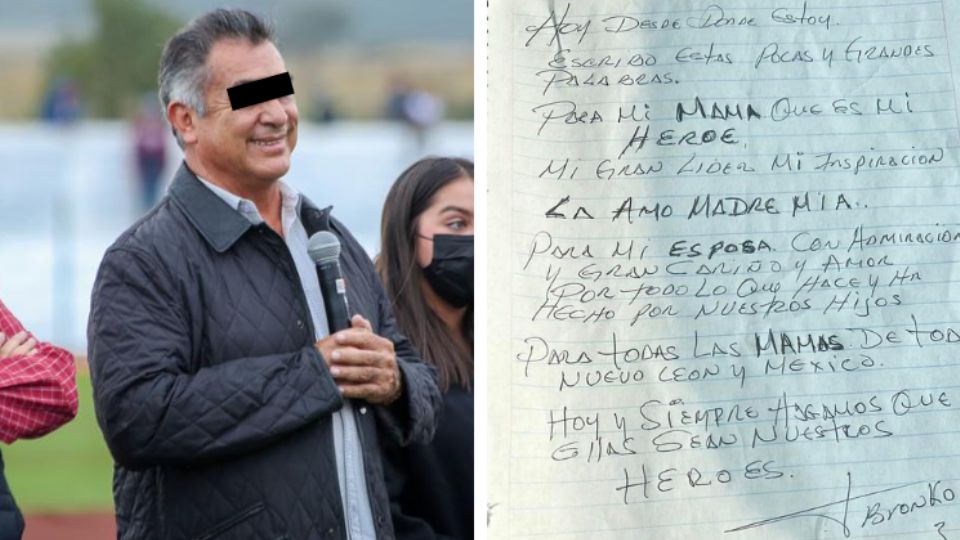 Hoy Desde Donde Estoy.
Escribo Estas Pocas y Grandes
Palabras.
Para Mi Mama Que es Mi
Heroe.
Mi Gran Lider Mi Inspiracion
La Amo Madre Mia..
Para Mi Esposa. Con Admiracion
y Gran Cariño y Amor
Por todo Lo Que Hace y Ha
Hecho por Nuestros Hijos
Para todas Las Mamas De tod
Nuevo Leon y Mexico.
Hoy y Siempre Hagamos Que
Ellas Sean Nuestros
Heroes.
Bronko